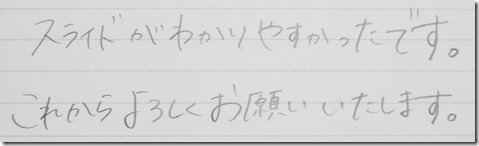 スライドがわかりやすかったです。
これからよろしくお願いいたします。